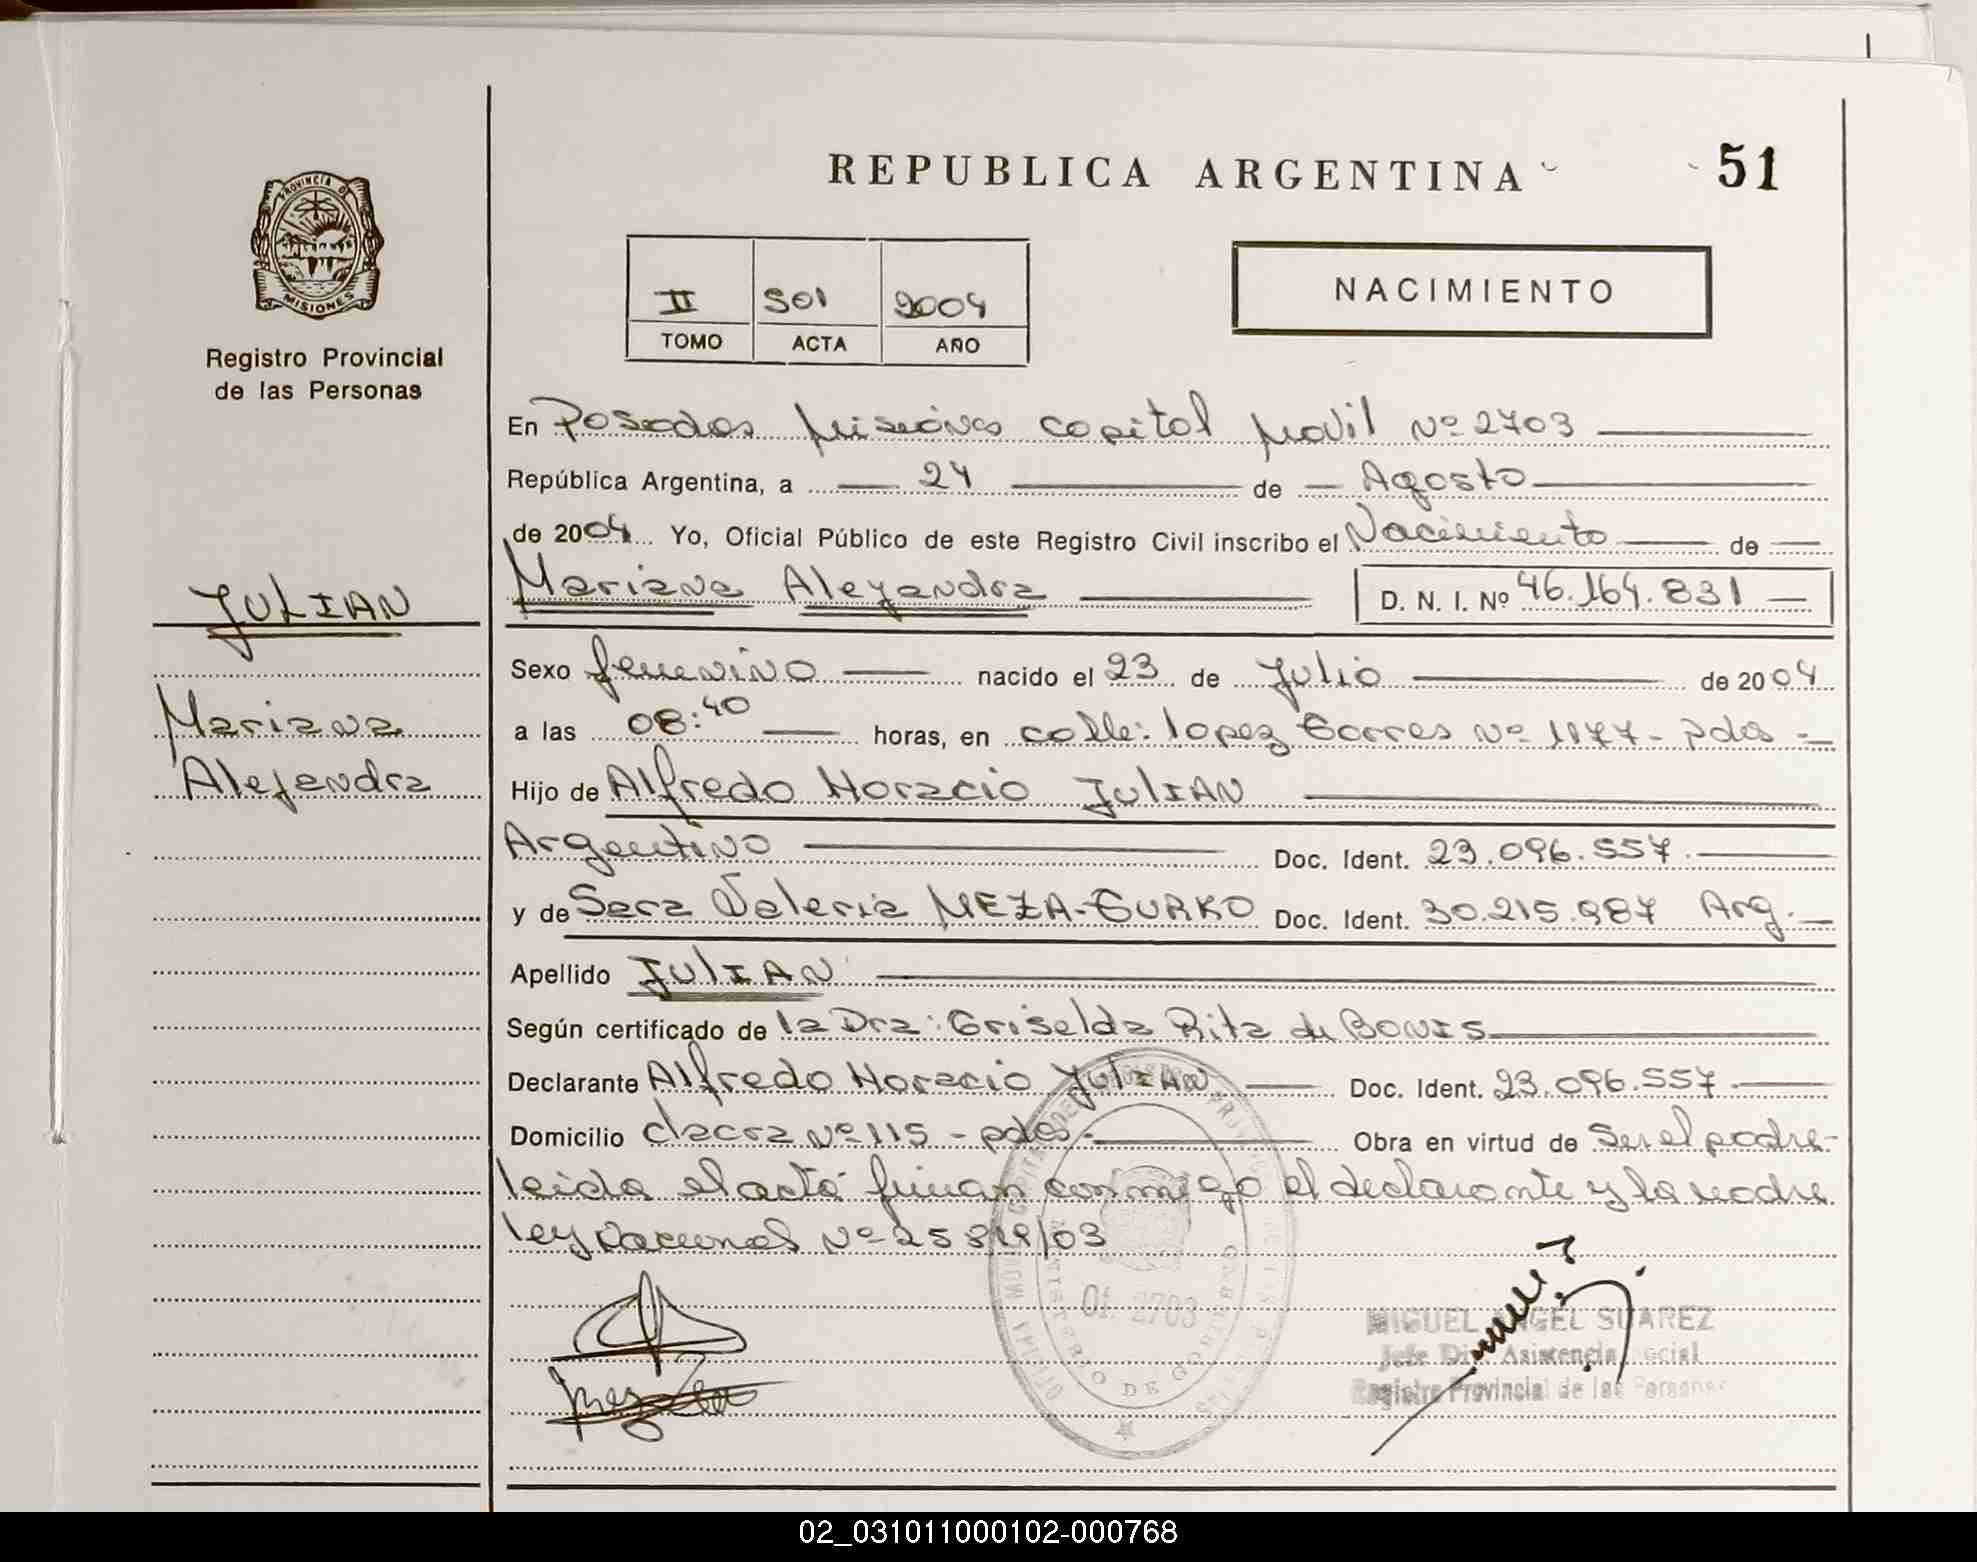 REPUBLICA ARGENTINA
51
PROVINCIA D
MISIONES
Registro Provincial
de las Personas
II 501 2004
TOMO ACTA AÑO
NACIMIENTO
En Posadas Misiones capital Movil Nº 2703
República Argentina, a 24 de Agosto
de 2004 Yo, Oficial Público de este Registro Civil inscribo el Nacimiento de
Mariana Alejandra D. N. I. Nº 46.164.831
JULIAN
Mariana
Alejandra
Sexo femenino nacido el 23 de Julio de 2004
a las 08:40 horas, en calle: lopez torres Nº 1177 - pdas
Hijo de Alfredo Horacio JULIAN
Argentino Doc. Ident. 23.096.557.
y de Sara Valeria MEZA-GURKO Doc. Ident. 30.215.987 Arg.
Apellido JULIAN
Según certificado de la Dra: Griselda Rita de BONIS
Declarante Alfredo Horacio JULIAN Doc. Ident. 23.096.557.
Domicilio chacra Nº 115 - pdas. Obra en virtud de Ser el padre-
leida el acta firman conmigo el declarante y la madre
ley nacional Nº 25819/03
Of. 2703
MINISTERIO DE GOBIERNO
MIGUEL ANGEL SUAREZ
Jefe Div. Asistencia Social
Registro Provincial de las Personas
02_031011000102-000768